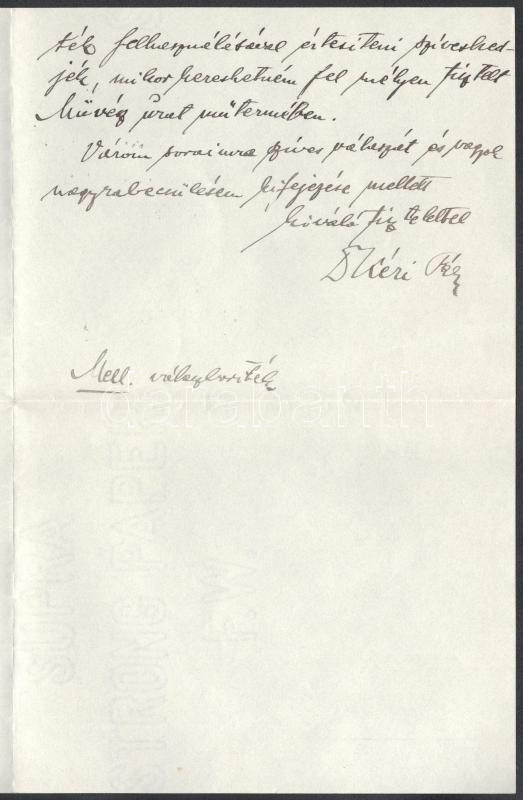 ték felhasználásával értesíteni szíveshed-
jék, mikor kereshetném fel mélyen tisztelt
Művész urat műtermében.
Várom soraimra szíves válaszát és vagyok
nagyrabecsülésem kifejezése mellett
kiváló tisztelettel
Dr Kéri Pál
Mell. válaszboríték
darabanth
SUPRA
STRONG PAPER